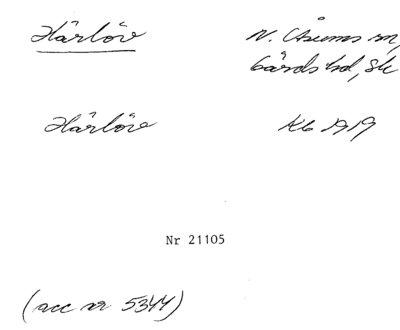 Härlöv
N. Åsums sn,
Gärds hd, Sk
Härlöv
Kb 1919
Nr 21105
(acc nr 5344)